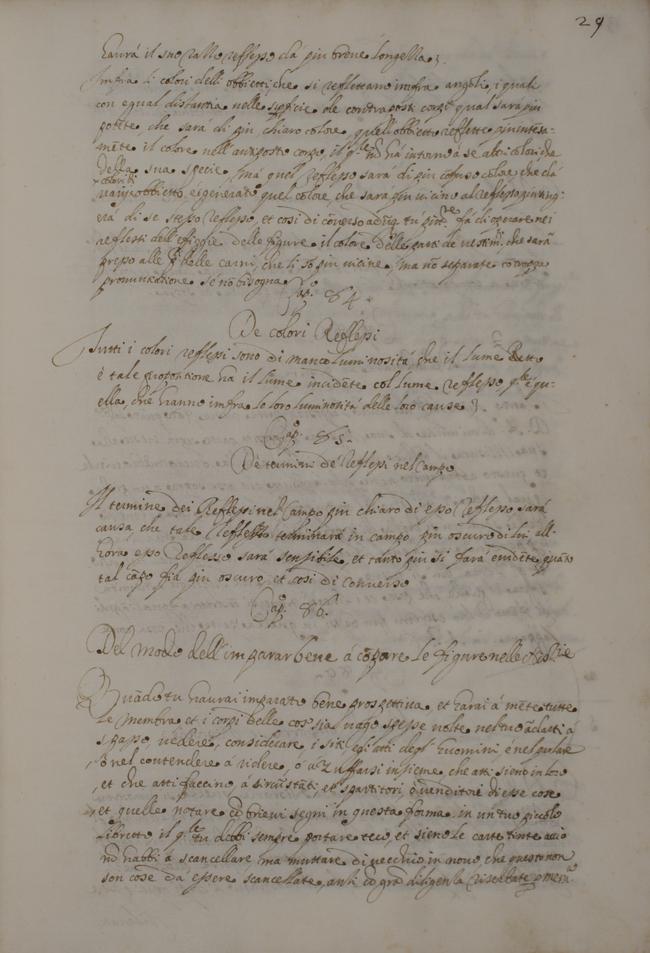 29
haurà il suo rasso reflesso da piu breve longella.
Infra li colori delli obbietti, che si reflettano infra angoli, i quali
con equal distantia nelle sup.ficie de contraposti corpi qual sarà piu
potēte che sarà di piu chiaro colore, quell'obbietto reflette piu intēsa-
mēte il colore nell'anteposto corpo, il q.le nō hà intorno à se altri colori che
della sua specie, ma quel reflesso sarà di piu confuso colore che da
varij colori di
obbietti è generato quel colore, che sarà piu vicino al reflesso piu ting-
erà di se stesso reflesso, et cosi di converso adūq. tu pitt.re fà di operare nei
reflessi dell'effiggie delle figure il colore delle parti de vestim.ti, che sarà
presso alle p. delle carni, che li sō piu vicine, ma nō separate cō troppa
pronuntiatione se nō bisogna.
Cap.o 84.
De colori Reflessi
Tutti i colori reflessi sono di manco luminosità, che il lume Retto
è tale proportione hà il lume incidēte col lume reflesso, q.le è qu-
ella, che hanno infra lo loro luminosità delle loro cause.
Cap.o 85.
De termini de Reflessi nel Campo
Il termine dei Reflessi nel Campo piu chiaro di esso reflesso sarà
causa, che tale Reflesso terminarà in campo piu oscuro di lui all-
hora esso Reflesso sarà sensibile, et tanto piu si farà evidēte, quāto
tal cāpo fia piu oscuro, et cosi di converso
Cap.o 86.
Del modo dell'imparar bene à copare le figure nelle historie
Quādo tu haurai imparato bene prospettiva, et harai à mēte tutte
le membra et i corpi delle cose sia vago spesse volte nel tuo ādarti à
spasso vedere, considerare i siti, egli atti degl' huomini è nel parlare
ò nel contendere ò ridere, ò à Zuffarsi insieme, che atti sieno in loro
et che atti faccino à circūstāti, et spartitori, ò venditori di esse cose
et quelle notare cō brievi segni in questa forma in un tuo piccolo
libretto il q.le tu debbi sempre portare teco, et sieno le carte tinte acciò
nō habbi à scancellare ma muttare di vecchio in novo, che queste non
son cose da essere scancellate, anzi cō grā diligentia riserbate